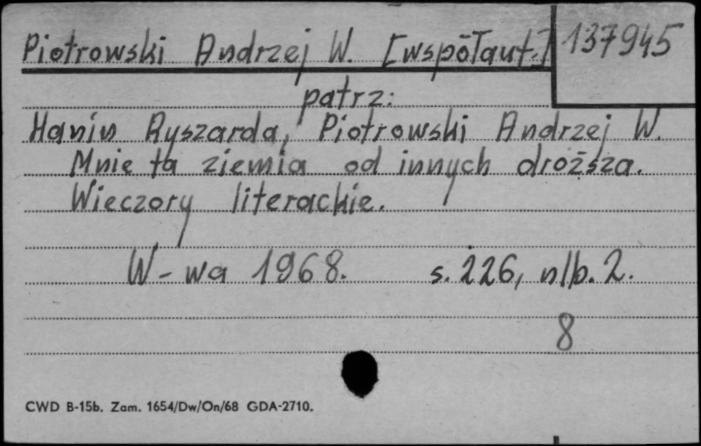 Piotrowski Andrzej W. [współaut.] 137945
patrz:
Hanin Ryszarda, Piotrowski Andrzej W.
Mnie ta ziemia od innych droższa.
Wieczory literackie.
W-wa 1968. s. 226, nlb. 2.
8
CWD B-15b. Zam. 1654/Dw/On/68 GDA-2710.